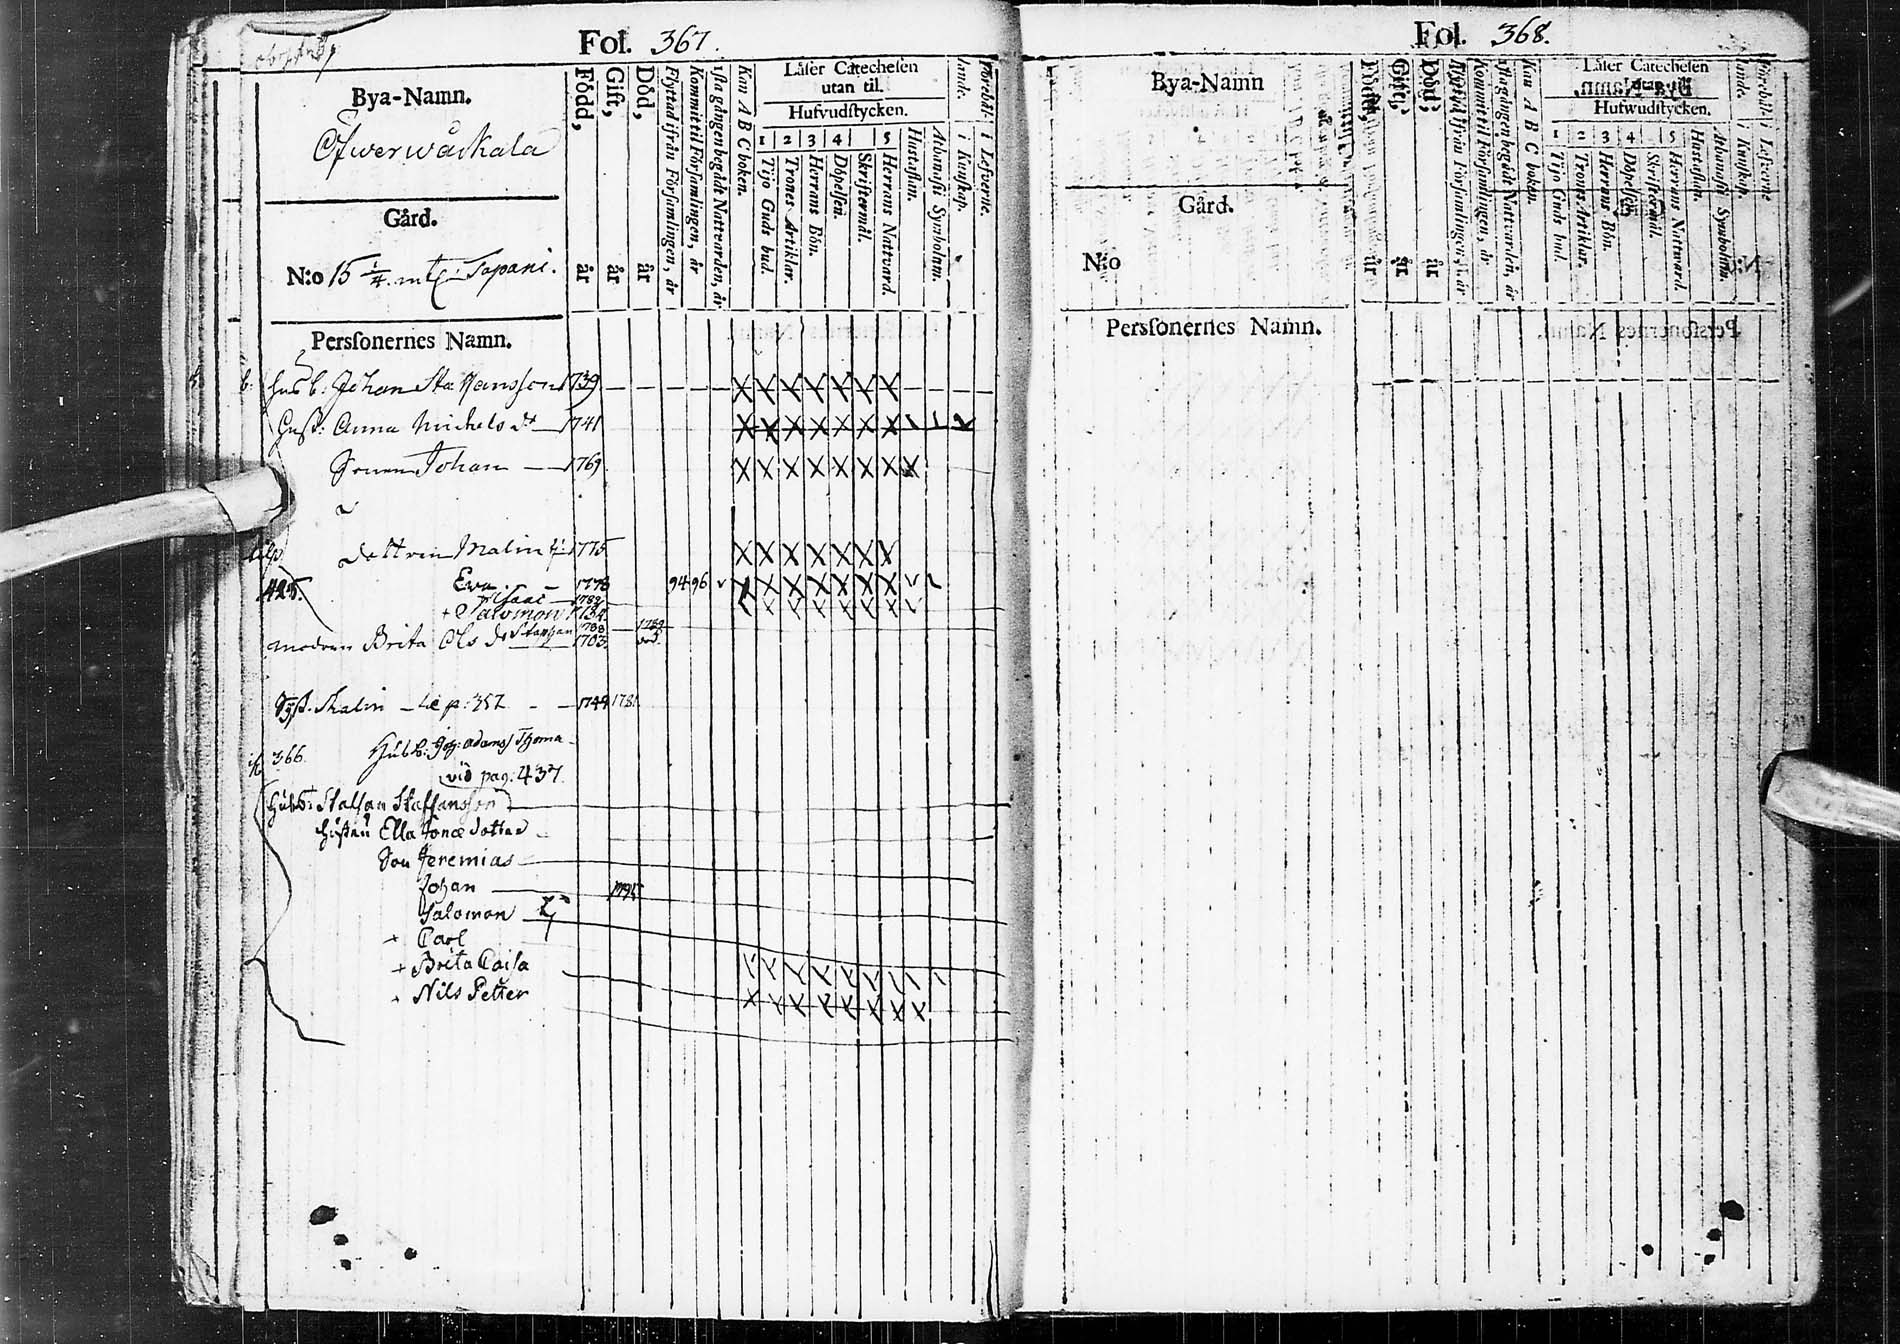 Fol. 367.
Bya-Namn.
Öfwerwåskala
Gård.
N:o 15 1/4. mtl: Tapani.
Persſonernes Namn.
Född, år
Gift, år
Död, år
Flyttad ifrån Förſamlingen, år
Kommit til Förſamlingen, år
1ſta gången begådt Nattvarden, år
Kan A B C boken.
Läſer Catecheſen
utan til.
Hufvudſtycken.
1 2 3 4 5
Tijo Guds bud.
Trones Artiklar.
Herrans Bön.
Döpelſen.
Skriftermål.
Herrans Natvard.
Huſtaflan.
Athanaſii Symbolum.
i Kunſkap.
i Lefverne.
Husb: Johan Staffansson 1739
Hust: Anna Michels dr 1741
Sonen Johan 1769
dottren Malin 1775
Eva 1778 94 96
Isaac 1782
+ Salomon
Staphan 1788 1789
modren Brita Ols dr 1703 död.
Syst. Malin 357 1749 1781
366. Husb: Joh: Adamss Thoma
vid pag: 437
Husb: Staffan Staffansson
hustru Ella Jonæ dotter
Son Jeremias
Johan 1795
Salomon
+ Carl
+ Brita Caisa
Nils Petter
Fol. 368.
Bya-Namn
Gård.
N:o
Persſonernes Namn.
Född, år
Gift, år
Död, år
Flyttad ifrån Förſamlingen, år
Kommit til Förſamlingen, år
1ſta gången begådt Nattvarden, år
Kan A B C boken.
Läſer Catecheſen
Hufwudſtycken.
1 2 3 4 5
Tijo Guds bud.
Trons Artiklar.
Herrans Bön.
Döpelſen.
Skriftermål.
Herrans Nattward.
Huſtaflan.
Athanaſii Symbolum.
i Kunſkap.
i Lefverne